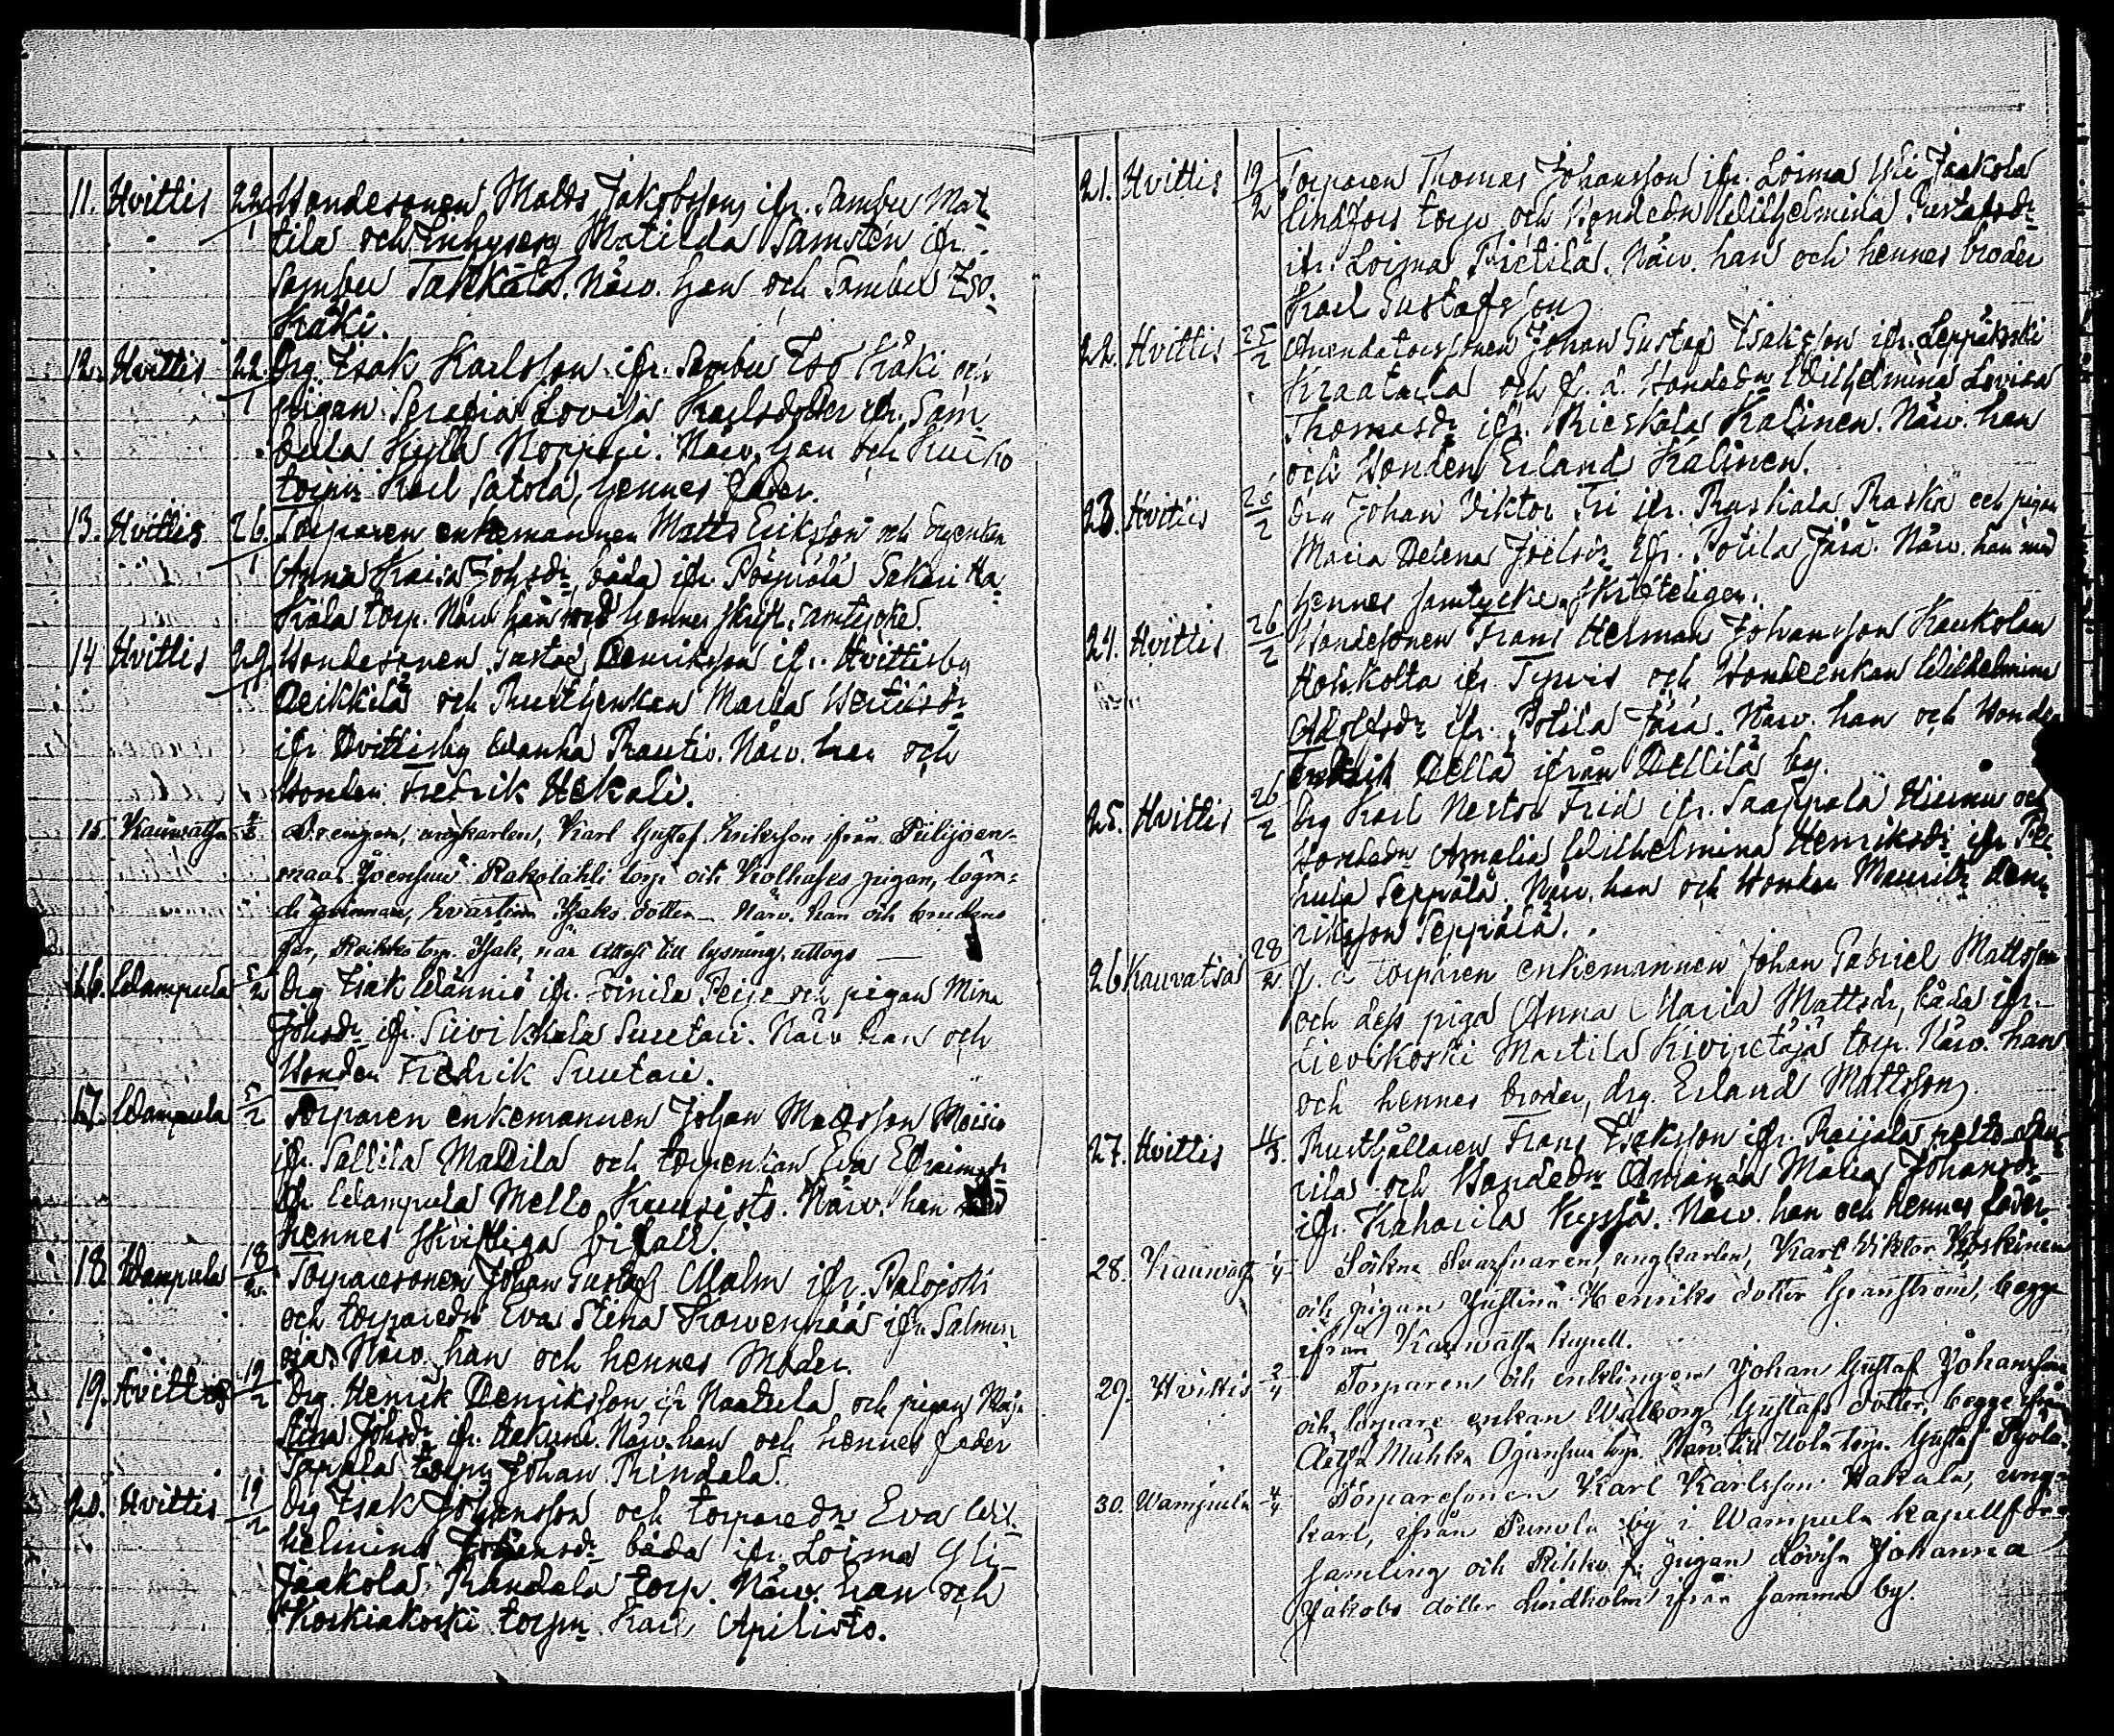 11. Hvittis 22/1 Bondesonen Matts Jakobsson ifr. Sambu Mat-
tila och Inhyses Matilda Samsten ifr.
Sambu Takkala. Närv. han och Sambu Iso-
Kräki.
12. Hvittis 22/1 Drg. Isak Karlsson ifr. Sambu Iso Kräki och
pigan Serafia Lovisa Karlsdotter ifr. Sam
Närv. han och
torpn Karl Satola, hennes fader.
13. Hvittis 26/1 Torparen enkemannen Matts Eriksson och
Anna Kaisa Johsdr, båda ifr.
torp. Närv. han med hennes skriftl. samtycke.
14 Hvittis 29/1 Bondesonen Gustaf Henriksson ifr. Hvittisby
Heikkilä och Rusth.enkan Maria
ifr. Hvittisby Wanha Rautio. Närv. han och
Bonden Fredrik Hekali.
15. Kauwatsa Drengen, ungkarlen, Karl Gustaf Eriksson ifrån Piilijoen-
maa Joensuu Rakolahti torp och pigan,
qvinnan, Isaks dotter – Närv. han och brudens
far, torp. Isak, när attest till lysning uttogs —
16. Wampula 5/2 Drg Isak Wännio ifr. och pigan Mina
Johsdr ifr. Suutari. Närv. han och
Bonden Fredrik Suutari.
17. Wampula 5/2 Torparen enkemannen Johan Matsson Moisio
ifr. Sallila Mattila och torpenkan Eva Efraimsdr
ifr Wampula Mello Kuusisto. Närv. han med
hennes skriftliga bifall.
18. Wampula 18/2 Torparesonen Johan Gustaf Malm ifr. Palojoki
och torparedr Eva Stina ifr. Salmen
oja. Närv. han och hennes Moder.
19. Hvittis 19/2 Drg. Henrik Henriksson ifr och pigan Maja
Stina Johsdr ifr. Närv. han och hennes fader
torpn Johan Rindala.
20. Hvittis 19/2 Drg Isak Johansson och torparedr Eva Wil-
helmina Johansdr båda ifr. Loima Yli
Jaakola Randala torp. Närv. han och
Koskiakoski torpn Karl Apilisto.
21. Hvittis 19/2 Torparen Thomas Johansson ifr. Loima Yli Jaakola
Lindfors torp och Bondedr Wilhelmina Gustafsdr
ifr. Loima Pietilä. Närv. han och hennes broder
Karl Gustafsson
22. Hvittis 25/2 Arendatorssonen Johan Gustaf Isaksson ifr. Leppäkoski
Kraatala och f. d. Bondedr Wilhelmina Lovisa
Thomasdr ifr. Rieskala Kalinen. Närv. han
och Bonden Erland Kalinen.
23. Hvittis 26/2 Drg Johan Viktor Fri ifr. Raskala Raska och pigan
Maria Helena Joelsdr ifr. Potila Jära. Närv. han med
hennes samtycke skrifteligen.
24. Hvittis 26/2 Bondesonen Frans Herman Johansson Kaukolan
ifr. Tyrvis och Bondeenkan Wilhelmina
Adolfsdr ifr. Potila Jära. Närv. han och Bonden
Hellä ifrån Hellilä by.
25. Hvittis 26/2 Drg Karl Nestor Frid ifr. Saappala och
Bondedr Amalia Wilhelmina Henriksdr ifr
Seppälä. Närv. han och Bonden Maurits Hen-
riksson Seppälä.
26 Kauvatsa 28/2 f. d. Torparen enkemannen Johan Gabriel Mattsson
och dess piga Anna Maria Mattsdr, båda ifr.
Lievikoski Martila torp. Närv. han
och hennes broder, drg. Erland Mattsson
27. Hvittis Rusthållaren Frans Isaksson ifr. Raijala
och Bondedr Amanda Maria Johansdr
ifr. Kaharila Kyssä. Närv. han och hennes fader.
28. Kauwatsa 1/4 Sockne Svarfvaren, ungkarlen, Karl Viktor Koskinen
och pigan Justina Henriks dotter Granström, begge
ifrån Kauwatsa kapell.
29. Hvittis 2/4 Torparen och enklingen Johan Gustaf Johansson
och torpare enkan Walborg Gustafs dotter, begge ifrån
torp. Närv. torp. Gustaf
30. Wampula 4/4 Torparesonen Karl Karlsson Hakala, ung-
karl, ifrån Punola by i Wampula kapellför-
samling och pigan Lovisa Johanna
Jakobs dotter Lindholm ifrån Hamma by.